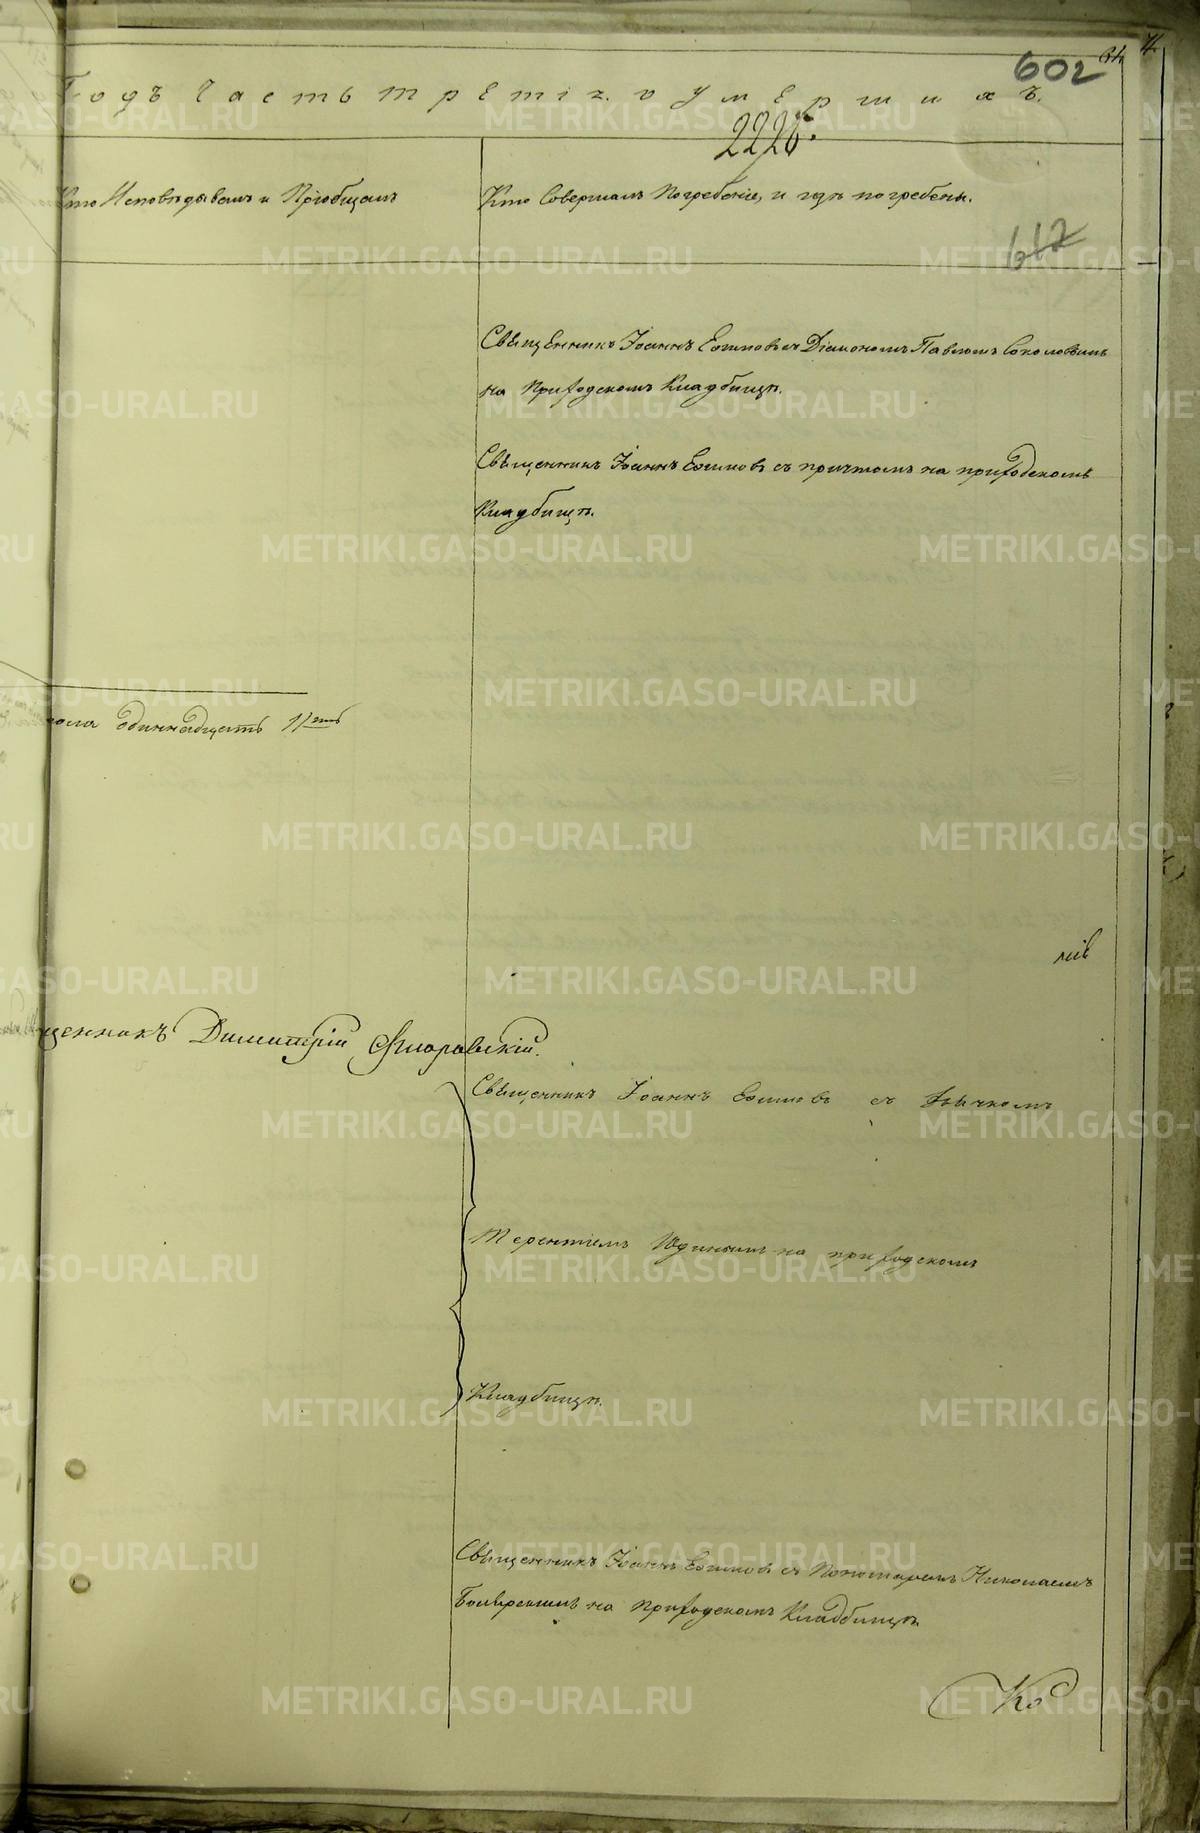 602
Годъ Часть третiя. о умершихъ.
2228.
Кто Исповѣдывалъ и Прiобщалъ
Кто Совершалъ Погребенiе, и гдѣ погребены.
617
Священникъ Iоаннъ Еѳимовъ съ Дiакономъ Павломъ Соколовымъ
на Приходскомъ Кладбищѣ.
Священникъ Iоаннъ Еѳимовъ съ причтомъ на приходскомъ
Кладбищѣ.
пола одиннадцать 11ть
щенникъ Димитрiй Флоровскiй.
Священникъ Iоаннъ Еѳимовъ съ Дьячкомъ
Терентiемъ Юдинымъ на приходскомъ
Кладбищѣ.
Священникъ Iоаннъ Еѳимовъ съ Пономаремъ Николаемъ
на Приходскомъ Кладбищѣ.
Ко
METRIKI.GASO-URAL.RU